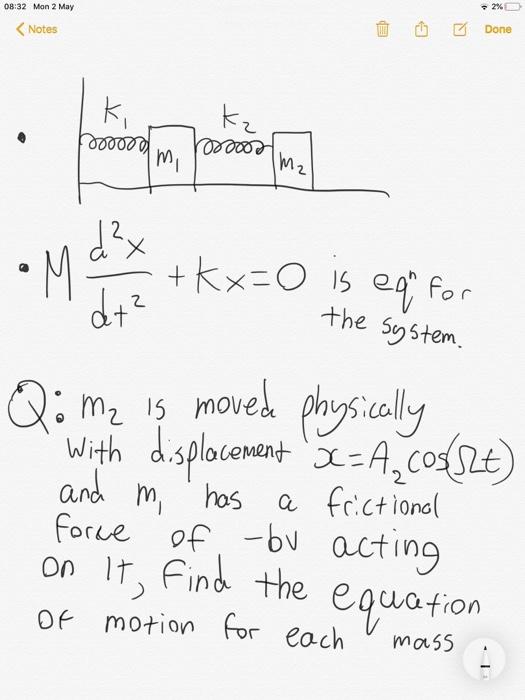 08:32 Mon 2 May
2%
Notes
Done
K₁
K₂
m₁
m₂
• M d²x/dt² + Kx=0 is eqⁿ for
the system.
Q: m₂ is moved physically
with displacement x=A₂cos(Ωt)
and m₁ has a frictional
force of -bv acting
on it, Find the equation
of motion for each mass